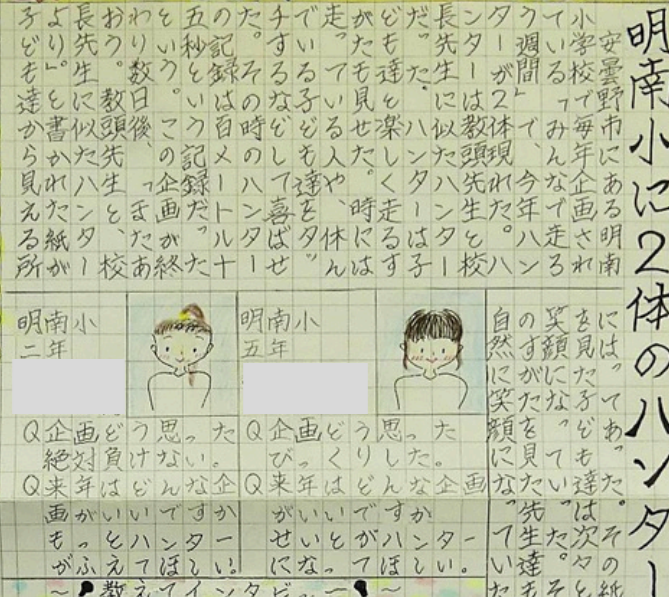 明南小に2体のハンター
安曇野市にある明南
小学校で毎年企画され
ている「みんなで走ろ
う週間」で、今年ハン
ターが2体現れた。ハ
ンターは教頭先生と校
長先生に似たハンター
だった。ハンターは子
ども達と楽しく走るす
がたも見せた。時には
走っている人や、休ん
でいる子ども達をタッ
チするなどして喜ばせ
た。その時のハンター
の記録は百メートル十
五秒という記録だった
という。この企画が終
わり数日後、「またあ
おう。教頭先生と、校
長先生に似たハンター
より。」と書かれた紙が
子ども達から見える所
にはってあった。その紙
を見た子ども達は次々と
笑顔になっていった。そ
のすがたを見た先生達も
自然に笑顔になっていた
明南小
五年
Q企画どう思った。
びっくりした。
Q来年はどんな企画
がいいですか
せいとがハンター
になってほしい。
明南小
二年
Q企画どう思った。
絶対負けない。
Q来年はどんな企
画がいいですか
もっとハンター
がふえてほしい。